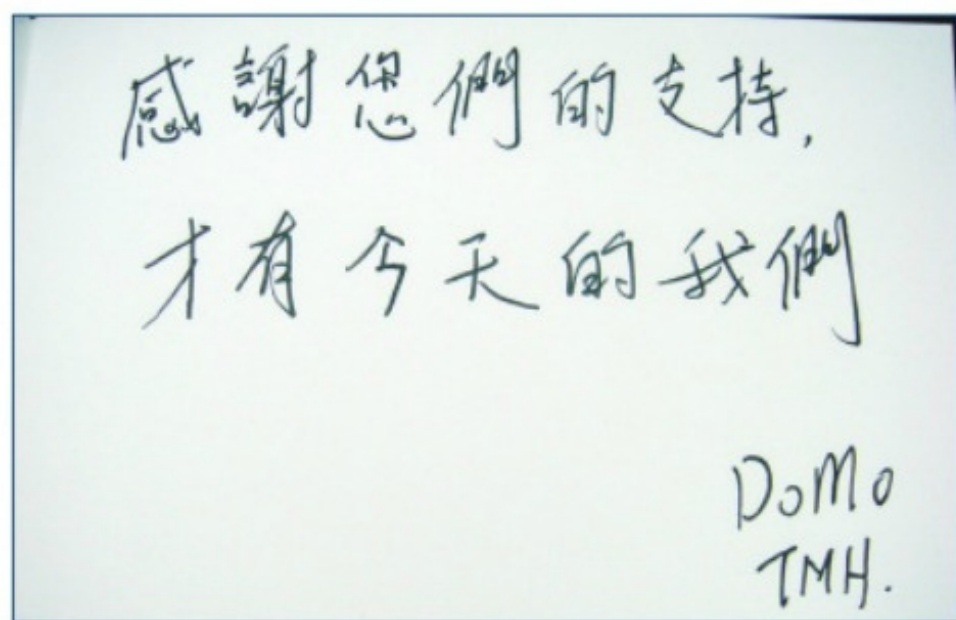 感謝您們的支持,
才有今天的我們
DoMo
TMH.